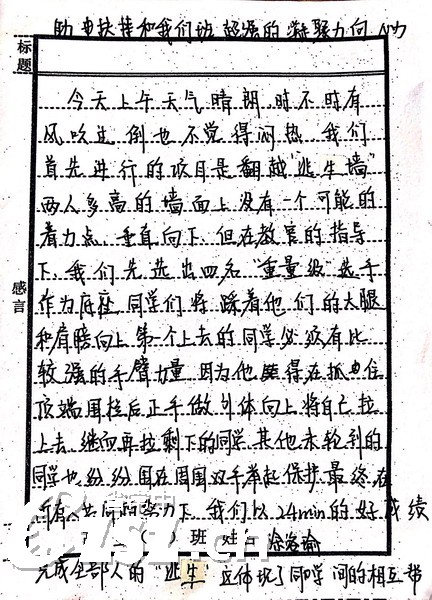 助曲扶持和我们班超强的凝聚力向心力
标题
今天上午天气晴朗,时不时有
风吹过,倒也不觉得闷热。我们
首先进行的项目是翻越“逃生墙”
两人多高的墙面上没有一个可能的
着力点,垂直向下。但在教官的指导
下,我们先选出四名“重量级”选手
作为底座,同学们将踩着他们的大腿
感言
和肩膀向上。第一个上去的同学必须有比
较强的手臂力量,因为他要得在抓住
顶端围栏后正手做引体向上将自己拉
上去,继而再拉剩下的同学。其他未轮到的
同学也纷纷围在周围双手举起保护。最终在
共同的努力下,我们以24min的好成绩
( )班 姓
完成全部人的“逃生”,这体现了同学间的相互帮